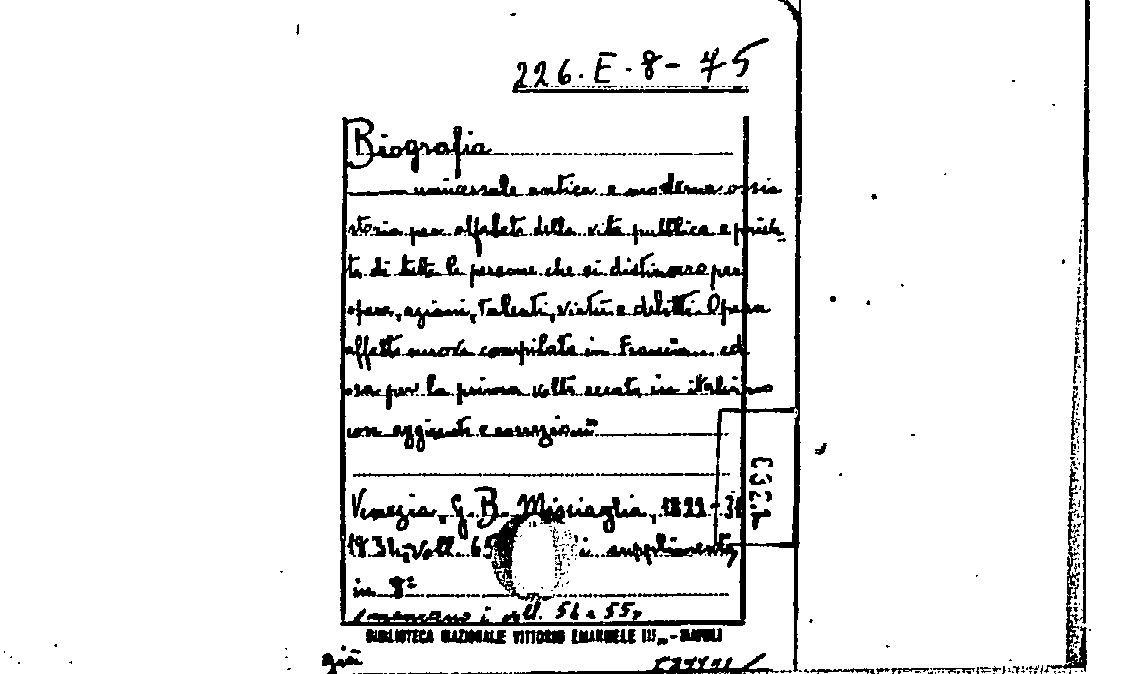 226. E. 8 - 75
Biografia
universale antica e moderna ossia
storia per alfabeto della vita pubblica e priva
ta di tutte le persone che si distinsero per
opere, azioni, talenti, virtù e delitti. Opera
affatto nuova compilata in Francia ed
ora per la prima volta recata in italiano
con aggiunte e correzioni
Venezia, G. B. Missiaglia, 1822-31
voll. 65 supplimento
in 8º
mancano i voll. 54 e 55,
BIBLIOTECA NAZIONALE VITTORIO EMANUELE III - NAPOLI
già